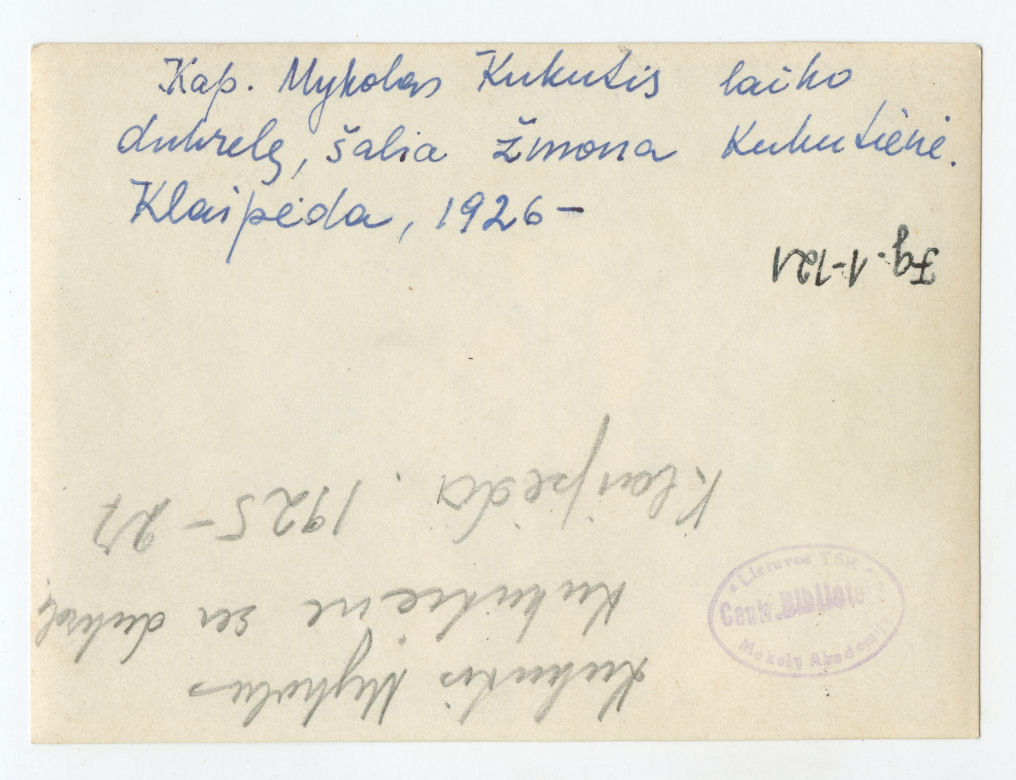 Kap. Mykolas Kukutis laiko
dukrelę, šalia žmona Kukutienė.
Klaipėda, 1926 –
Fg. 1-121
Kukutis Mykolas
Kukutienė su dukrele
Klaipėda. 1925 – 27
Lietuvos TSR
Centr. Bibliotek
Mokslų Akademija